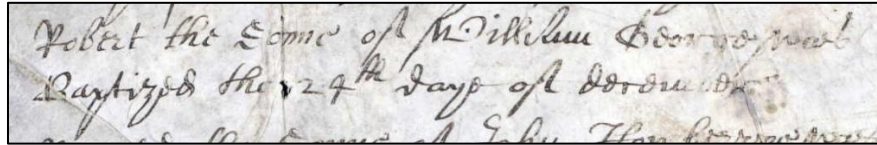 Robert the Sonne of William George was
Baptized the 24th daye of december
the Sonne of John